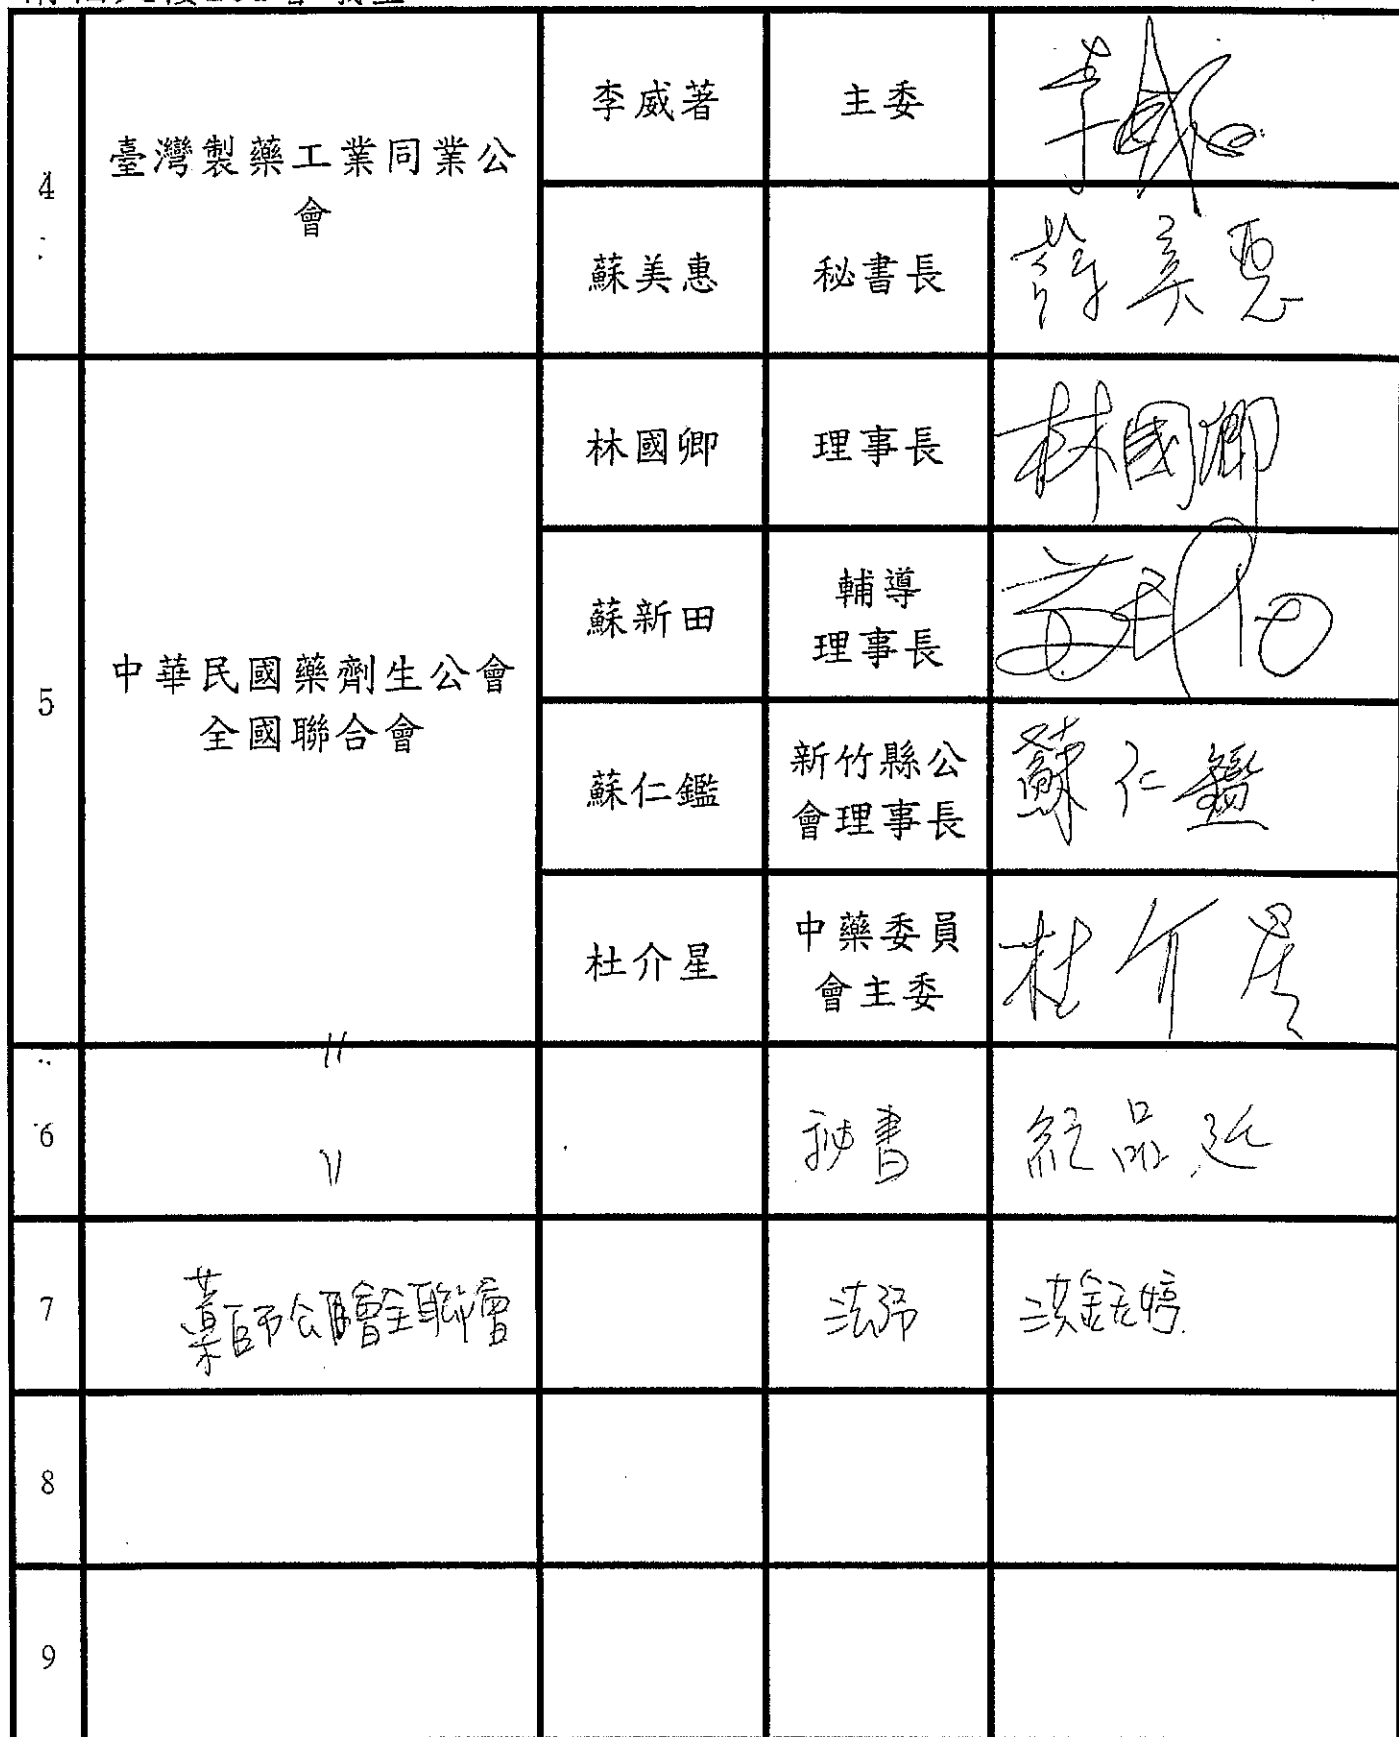 4
臺灣製藥工業同業公
會
李威著
主委
蘇美惠
秘書長
蘇美惠
5
中華民國藥劑生公會
全國聯合會
林國卿
理事長
林國卿
蘇新田
輔導
理事長
蘇仁鑑
新竹縣公
會理事長
蘇仁鑑
杜介星
中藥委員
會主委
杜介星
6
〃
〃
秘書
品
7
藥師公會全聯會
法務
婷
8
9